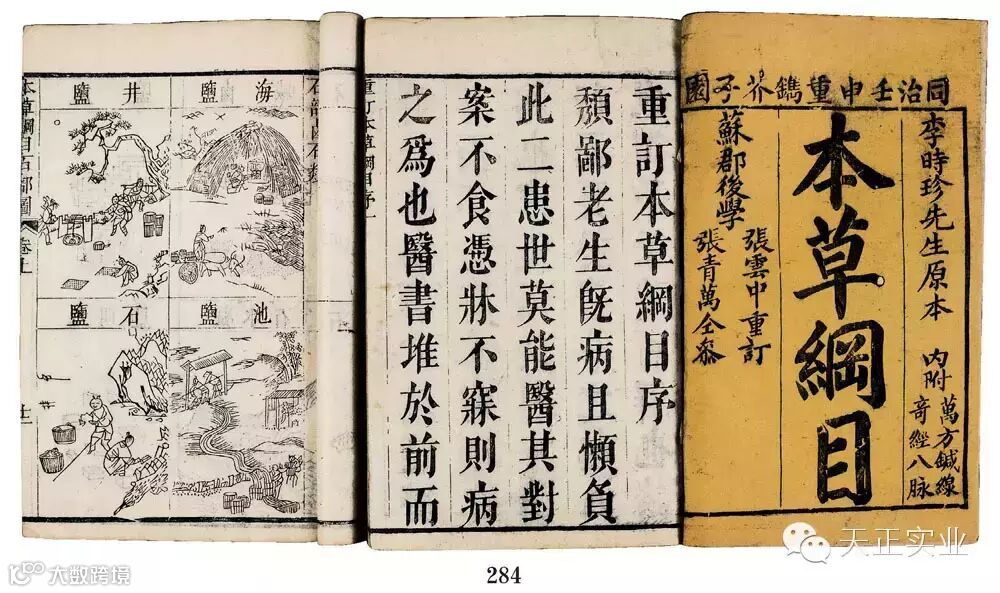 同治壬申重鐫芥子園
李時珍先生原本
內附
萬方鍼線
奇經八脉
本草綱目
蘇郡後學
張雲中重訂
張青萬仝參
重訂本草綱目序
頽鄙老生既病且懶負
此二患世莫能醫其對
案不食憑牀不寐則病
之爲也醫書堆於前而
重訂本草綱目序一
石部鹵石類
海鹽
井鹽
池鹽
石鹽
本草綱目石部圖
卷上
284
天正实业
大数跨境